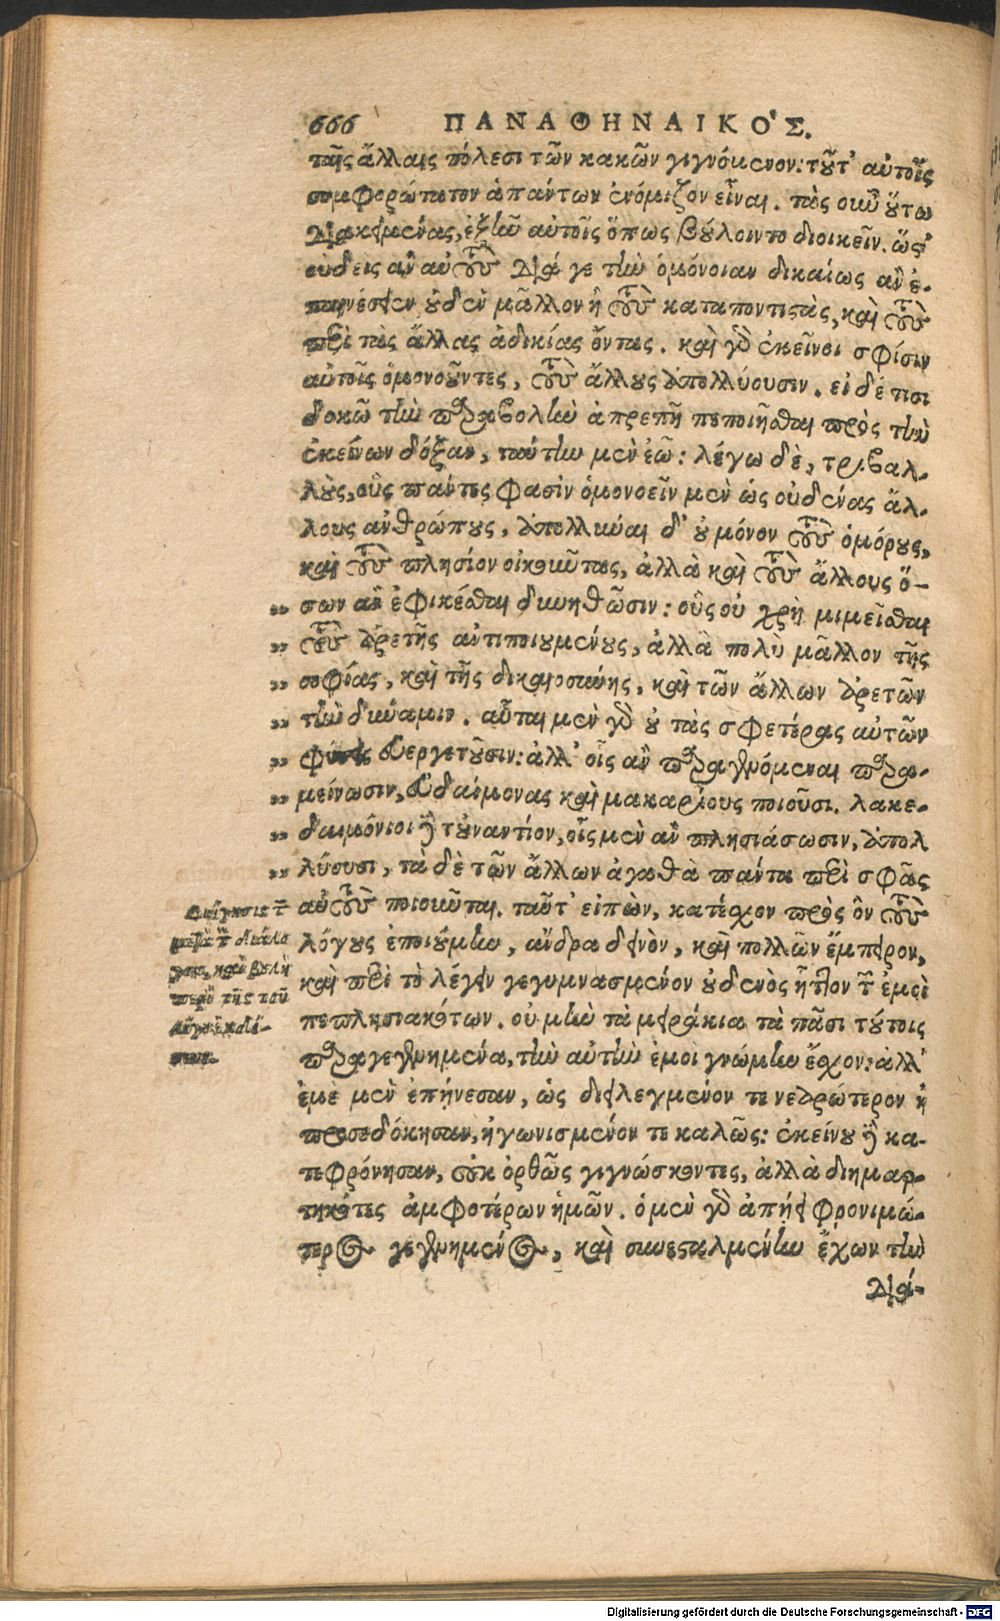 666 ΠΑΝΑΘΗΝΑΙΚΟ'Σ.
ταῖς ἄλλαις πόλεσι τῶν κακῶν γιγνόμενον: τοῦτ' αὐτοῖς
συμφερώτατον ἁπάντων ἐνόμιζον εἶναι. τὰς οὖν οὕτω
διακειμένας, ἐξῆν αὐτοῖς ὅπως βούλοιντο διοικεῖν. ὥστ'
οὐδεὶς ἂν αὐτοὺς διά γε τὴν ὁμόνοιαν δικαίως ἂν ἐ-
παινέσειεν οὐδὲν μᾶλλον ἢ τοὺς καταποντιστὰς, καὶ τοὺς
περὶ τὰς ἄλλας ἀδικίας ὄντας. καὶ γὰρ ἐκεῖνοι σφίσιν
αὐτοῖς ὁμονοοῦντες, τοὺς ἄλλους ἀπολλύουσιν. εἰ δέ τισι
δοκῶ τὴν παραβολὴν ἀπρεπῆ πεποιῆσθαι πρὸς τὴν
ἐκείνων δόξαν, ταύτην μὲν ἐῶ: λέγω δὲ, τριβαλ-
λοὺς, οὓς πάντες φασὶν ὁμονοεῖν μὲν ὡς οὐδένας ἄλ-
λους ἀνθρώπους, ἀπολλύναι δ' οὐ μόνον τοὺς ὁμόρους,
καὶ τοὺς πλησίον οἰκοῦντας, ἀλλὰ καὶ τοὺς ἄλλους ὅ-
„ σων ἂν ἐφικέσθαι δυνηθῶσιν: οὓς οὐ χρὴ μιμεῖσθαι
„ τοὺς ἀρετῆς ἀντιποιουμένους, ἀλλὰ πολὺ μᾶλλον τῆς
„ σοφίας, καὶ τῆς δικαιοσύνης, καὶ τῶν ἄλλων ἀρετῶν
„ τὴν δύναμιν. αὗται μὲν γὰρ οὐ τὰς σφετέρας αὐτῶν
„ φύσεις εὐεργετοῦσιν: ἀλλ' οἷς ἂν παραγενόμεναι παρα-
„ μείνωσιν, εὐδαίμονας καὶ μακαρίους ποιοῦσι. λακε-
„ δαιμόνιοι δὲ τοὐναντίον, οἷς μὲν ἂν πλησιάσωσιν, ἀπολ
„ λύουσι, τὰ δὲ τῶν ἄλλων ἀγαθὰ πάντα περὶ σφᾶς
αὐτοὺς ποιοῦνται. ταῦτ' εἰπὼν, κατέσχον πρὸς ὃν τοὺς
λόγους ἐποιούμην, ἄνδρα δεινὸν, καὶ πολλῶν ἔμπειρον,
καὶ περὶ τὸ λέγειν γεγυμνασμένον οὐδενὸς ἧττον τῶν ἐμοὶ
πεπλησιακότων. οὐ μὴν τὰ μειράκια τὰ πᾶσι τούτοις
παραγεγενημένα, τὴν αὐτὴν ἐμοὶ γνώμην ἔσχον: ἀλλ'
ἐμὲ μὲν ἐπῄνεσαν, ὡς διειλεγμένον τε νεαρώτερον ἢ
προσεδόκησαν, ἠγωνισμένον τε καλῶς: ἐκείνου δὲ κα-
τεφρόνησαν, οὐκ ὀρθῶς γιγνώσκοντες, ἀλλὰ διημαρ-
τηκότες ἀμφοτέρων ἡμῶν. ὁ μὲν γὰρ ἀπῄει φρονιμώ-
τερος γεγενημένος, καὶ συνεσταλμένην ἔχων τὴν
διά-
Διήγησις τῶν
μετὰ τὸν διάλο
γον, καὶ βουλὴ
περὶ τῆς τοῦ
λόγου ἐκδό-
σεως.
Digitalisierung gefördert durch die Deutsche Forschungsgemeinschaft - DFG